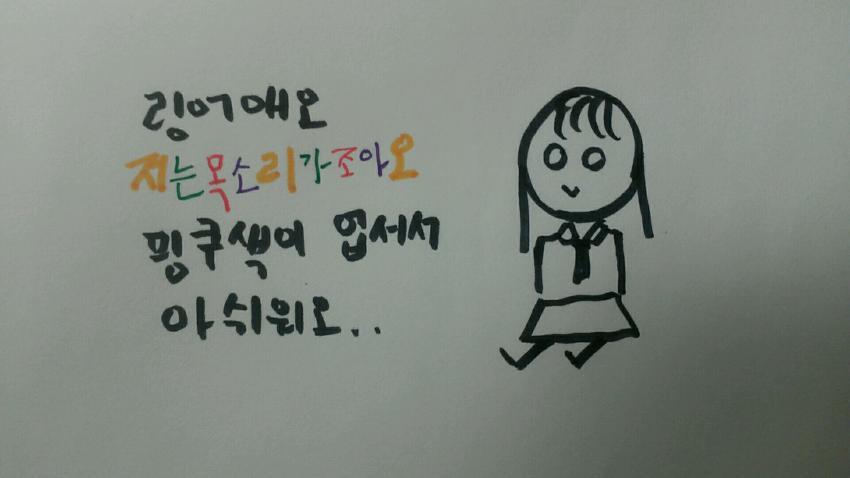 링어애오
저는목소리가조아오
핑쿠색이 업서서
아쉬워오..